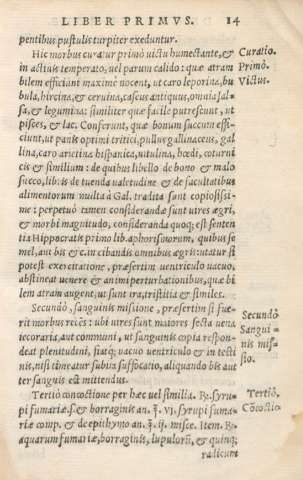 LIBER PRIMVS. 14
pentibus pustulis turpiter exeduntur.
Hic morbus curatur primò victu humectante, &
in actiuis temperato, uel parum calido: quæ atram
bilem efficiunt maximè nocent, ut caro leporina, bu
bula, hircina, & ceruina, caseus antiquus, omnia sal=
sa, & legumina: similiter quæ facile putrescunt, ut
pisces, & lac. Conferunt, quæ bonum succum effi=
ciunt, ut panis optimi tritici, pullus gallinaceus, gal
lina, caro arietina hispanica, uitulina, hœdi, coturni
cis & similium: de quibus libello de bono & malo
succo, libris de tuenda ualetudine & de facultatibus
alimentorum multa à Gal. tradita sunt copiosissi=
me: perpetuò tamen considerandæ sunt uires ægri,
& morbi magnitudo, consideranda quoq; est senten
tia Hippocratis primo lib. aphorismorum, quibus se
mel, aut bis &c. in cibandis omnibus ægris: utatur si
potest exercitatione, præsertim uentriculo uacuo,
abstineat uenere & animi perturbationibus, quæ bi
lem atram augent, ut sunt ira, tristitia & similes.
Secundò, sanguinis missione, præsertim si fue
rit morbus recẽs: ubi uires sunt maiores secta uena
iecoraria, aut communi, ut sanguinis copia respon=
deat plenitudini, fiatq; uacuo uentriculo & in iecti
nis, nisi timeatur subita suffocatio, aliquando bis aut
ter sanguis est mittendus.
Tertiò concoctione per hæc uel similia. ℞. syru=
pi fumariæ. s. & borraginis an. ℥. vj. syrupi fuma=
riæ comp. & de epithymo an. ℥. ij. misce. Item. ℞.
aquarum fumariæ, borraginis, lupulorũ, & quinq;
radicum
Curatio.
Primò.
Victus.
Secundò
Sangui=
nis mis=
sio.
Tertiò,
Cõcoctio